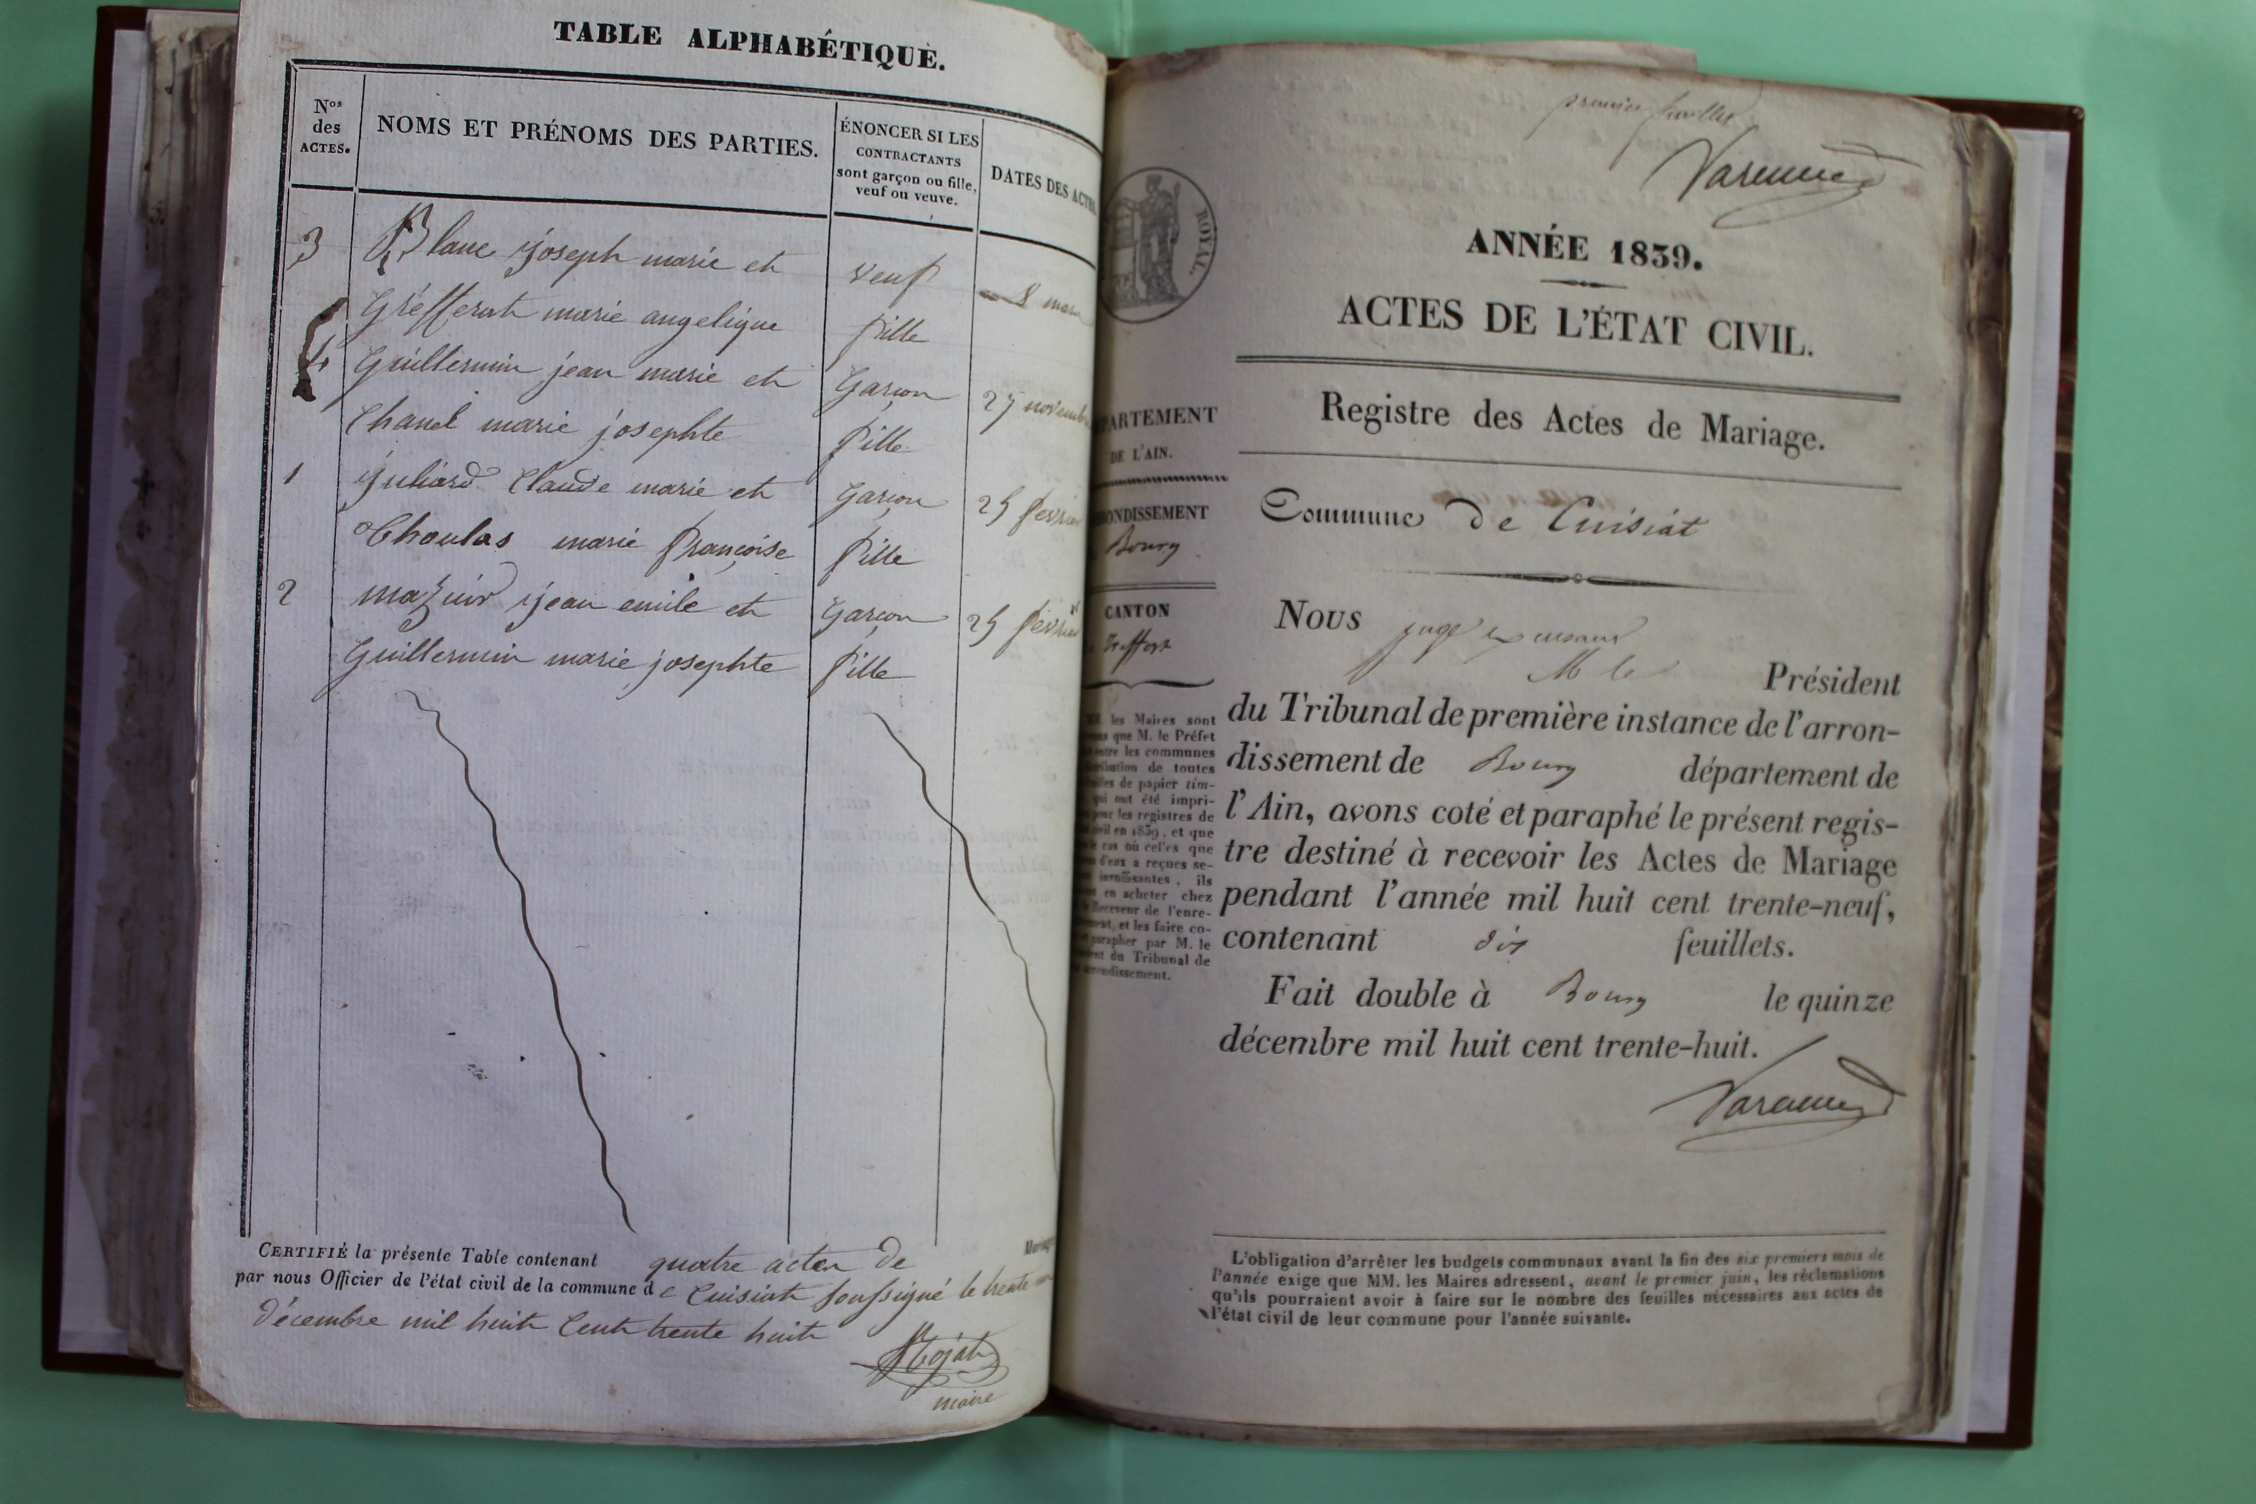 TABLE ALPHABÉTIQUE.
Nos des ACTES.
NOMS ET PRÉNOMS DES PARTIES.
ÉNONCER SI LES
CONTRACTANTS
sont garçon ou fille,
veuf ou veuve.
DATES DES ACTES
3 Blanc joseph marie et veuf 8 mars
Grefferat marie angelique fille
4 Guillermin jean marie et Garçon 27 novembre
Chanel marie josephte fille
1 juliard Claude marie et Garçon 25 fevrier
Choulas marie françoise fille
2 mazuir jean emile et Garçon 25 fevrier
Guillermin marie josephte fille
CERTIFIÉ la présente Table contenant quatre actes de Mariage
par nous Officier de l'état civil de la commune de Cuisiat soussigné le trente
décembre mil huit Cent trente huit
maire
premier feuillet
ROYAL.
ANNÉE 1839.
ACTES DE L'ÉTAT CIVIL.
Registre des Actes de Mariage.
Commune de Cuisiat
PARTEMENT
DE L'AIN.
ONDISSEMENT
Bourg
CANTON
Treffort
les Maires sont
que M. le Préfet
entre les communes
de toutes
de papier tim-
qui ont été impri-
pour les registres de
civil en 1839, et que
cas où celles que
d'eux a reçues se-
insuffisantes, ils
en acheter chez
Receveur de l'enre-
et les faire co-
parapher par M. le
du Tribunal de
Nous juge
M le Président
du Tribunal de première instance de l'arron-
dissement de Bourg département de
l'Ain, avons coté et paraphé le présent regis-
tre destiné à recevoir les Actes de Mariage
pendant l'année mil huit cent trente-neuf,
contenant dix feuillets.
Fait double à Bourg le quinze
décembre mil huit cent trente-huit.
L'obligation d'arrêter les budgets communaux avant la fin des six premiers mois de
l'année exige que MM. les Maires adressent, avant le premier juin, les réclamations
qu'ils pourraient avoir à faire sur le nombre des feuilles nécessaires aux actes de
l'état civil de leur commune pour l'année suivante.